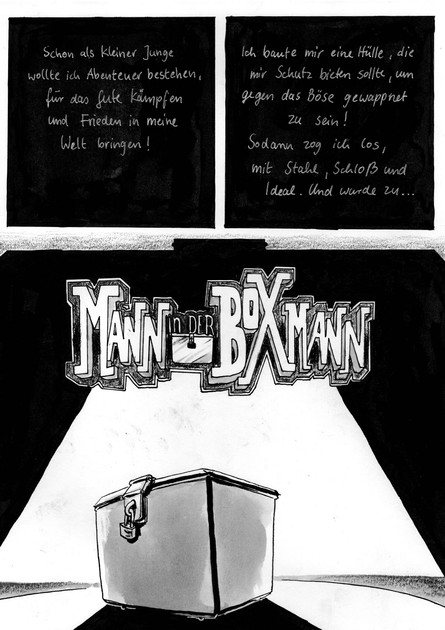 Schon als kleiner Junge
wollte ich Abenteuer bestehen,
für das Gute kämpfen
und Frieden in meine
Welt bringen!
Ich baute mir eine Hülle, die
mir Schutz bieten sollte, um
gegen das Böse gewappnet
zu sein!
Sodann zog ich los,
mit Stahl, Schloß und
Ideal. Und wurde zu...
MANN in DER BOXMANN